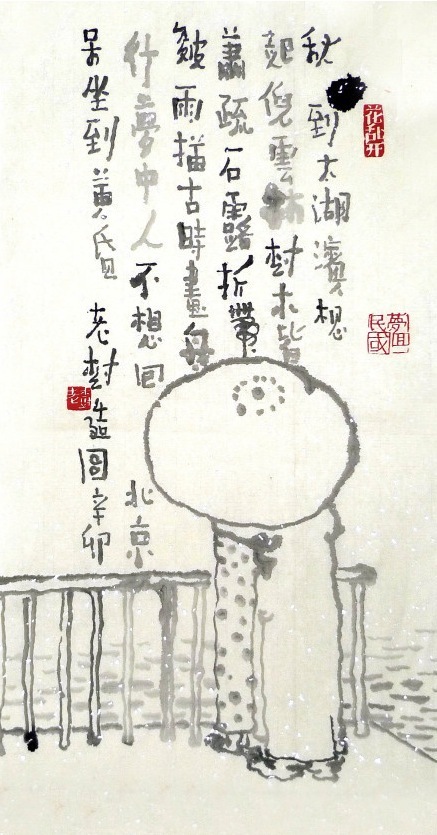 秋到太湖濱想
起倪雲林樹木皆
蕭疏石露折帶
皴雨描古時畫每
作夢中人不想回北京
呆坐到黃昏老樹圖辛卯
花乱开
夢回民國